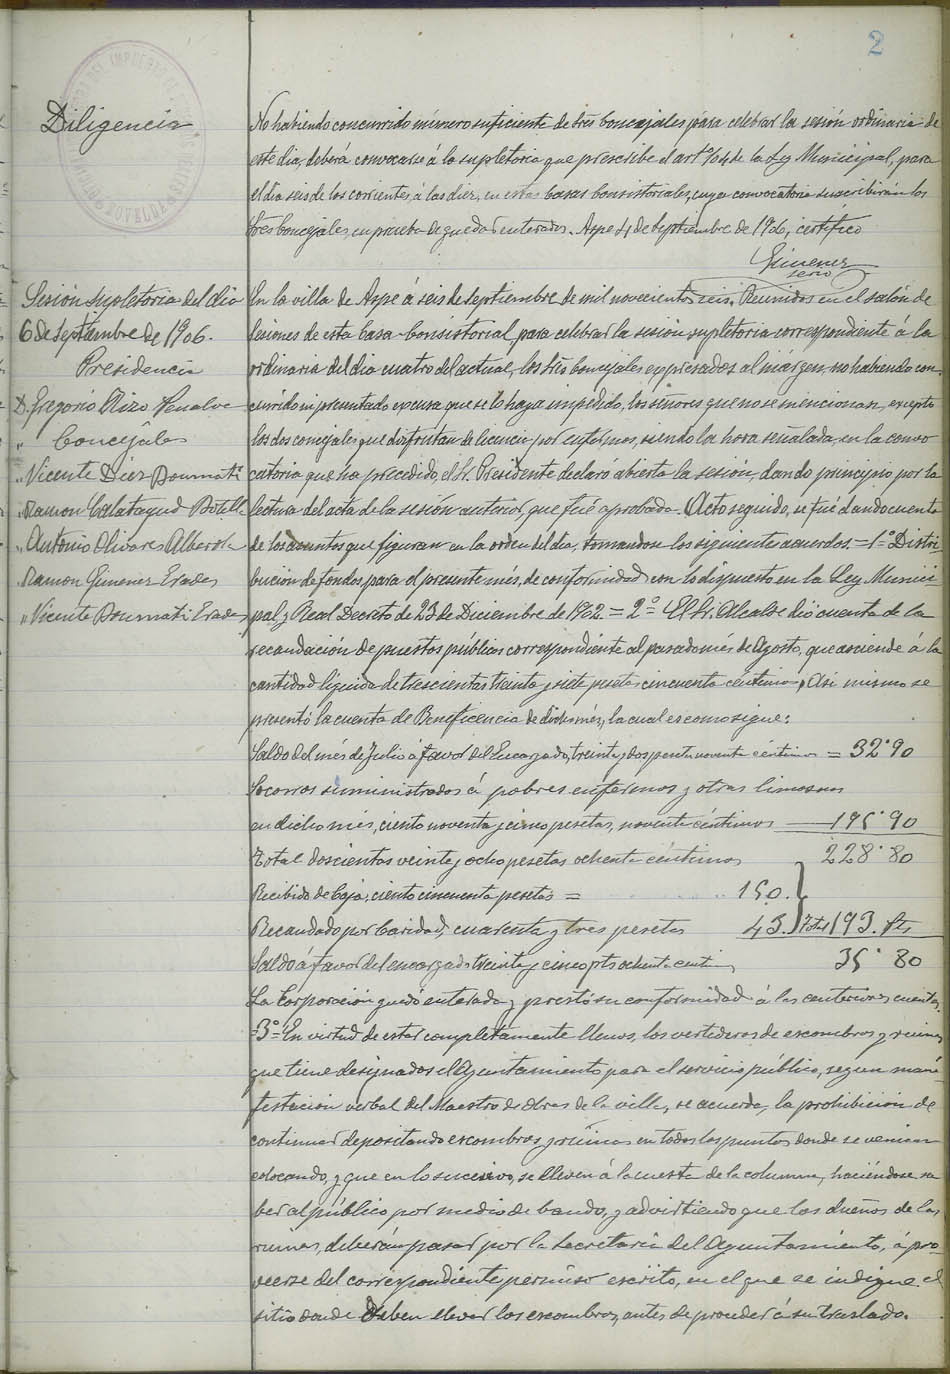 2
Diligencia
No habiendo concurrido número suficiente de Sres Concejales para celebrar la sesión ordinaria de
este dia, deberá convocarse á la supletoria que prescribe el artº 104 de la Ley Municipal, para
el dia seis de los corrientes, á las diez, en estas Casas Consistoriales, cuya convocatoria suscribirán los
Sres Concejales, en prueba de quedar enterados. Aspe 4 de Septiembre de 1906, certifico
Gimenez
serio
Sesión supletoria del dia
6 de Septiembre de 1906.
Presidencia
D. Gregorio Rizo Penalva
" Concejales
" Vicente Diez Boumati
" Ramon Calatayud Botella
" Antonio Olivares Alberola
" Ramon Gimenez Erades
" Vicente Boumati Erades
En la villa de Aspe á seis de Septiembre de mil novecientos seis. Reunidos en el salón de
sesiones de esta Casa-Consistorial para celebrar la sesión supletoria correspondiente á la
ordinaria del dia cuatro del actual, los Sres Concejales expresados al márgen, no habiendo con-
currido ni presentado excusa que se lo haya impedido, los señores que no se mencionan, excepto
los dos concejales que disfrutan de licencia por enfermos, siendo la hora señalada en la convo
catoria que ha precedido, el Sr. Presidente declaró abierta la sesión, dando principio por la
lectura del acta de la sesión anterior, que fué aprobada. Acto seguido, se fué dando cuenta
de los asuntos que figuran en la orden del dia, tomandose los siguiente acuerdos. = 1º Distri-
bución de fondos, para el presente més, de conformidad con lo dispuesto en la Ley Munici-
pal y Real Decreto de 23 de Diciembre de 1902 = 2º El Sr. Alcalde dió cuenta de la
recaudación de puestos públicos correspondiente al pasado més de Agosto, que asciende á la
cantidad líquida de trescientas treinta y siete pesetas cincuenta céntimos, Asi mismo se
presentó la cuenta de Beneficencia de dicho més, la cual es como sigue:
Saldo del més de Julio á favor del Encargado, treinta y dos pesetas noventa céntimos = 32'90
Socorros suministrados á pobres enfermos y otras limosnas
en dicho més, ciento noventa y cinco pesetas, noventa céntimos 195'90
Total doscientas veinte y ocho pesetas ochenta céntimos 228'80
Recibido de Caja, ciento cincuenta pesetas = 150.
Recaudado por Caridad, cuarenta y tres pesetas 43. Total 193. Pts
Saldo á favor del encargado treinta y cinco pts ochenta centim 35'80
La Corporación quedó enterada y prestó su conformidad á las anteriores cuentas.
= 3º = En virtud de estar completamente llenos, los vertederos de escombros y ruinas
que tiene designados el Ayuntamiento para el servicio público, segun mani-
festacion verbal del Maestro de Obras de la villa, se acuerda, la prohibicion de
continuar depositando escombros y ruinas en todos los puntos donde se venian
colocando, y que en lo sucesivo, se lleven á la cuesta de la columna, haciéndose sa
ber al público por medio de bando, y advirtiendo que los dueños de las
ruinas, deberán pasar por la Secretaria del Ayuntamiento, á pro-
veerse del correspondiente permiso escrito, en el que se indique el
sitio donde deben llevar los escombros, antes de proceder á su traslado.